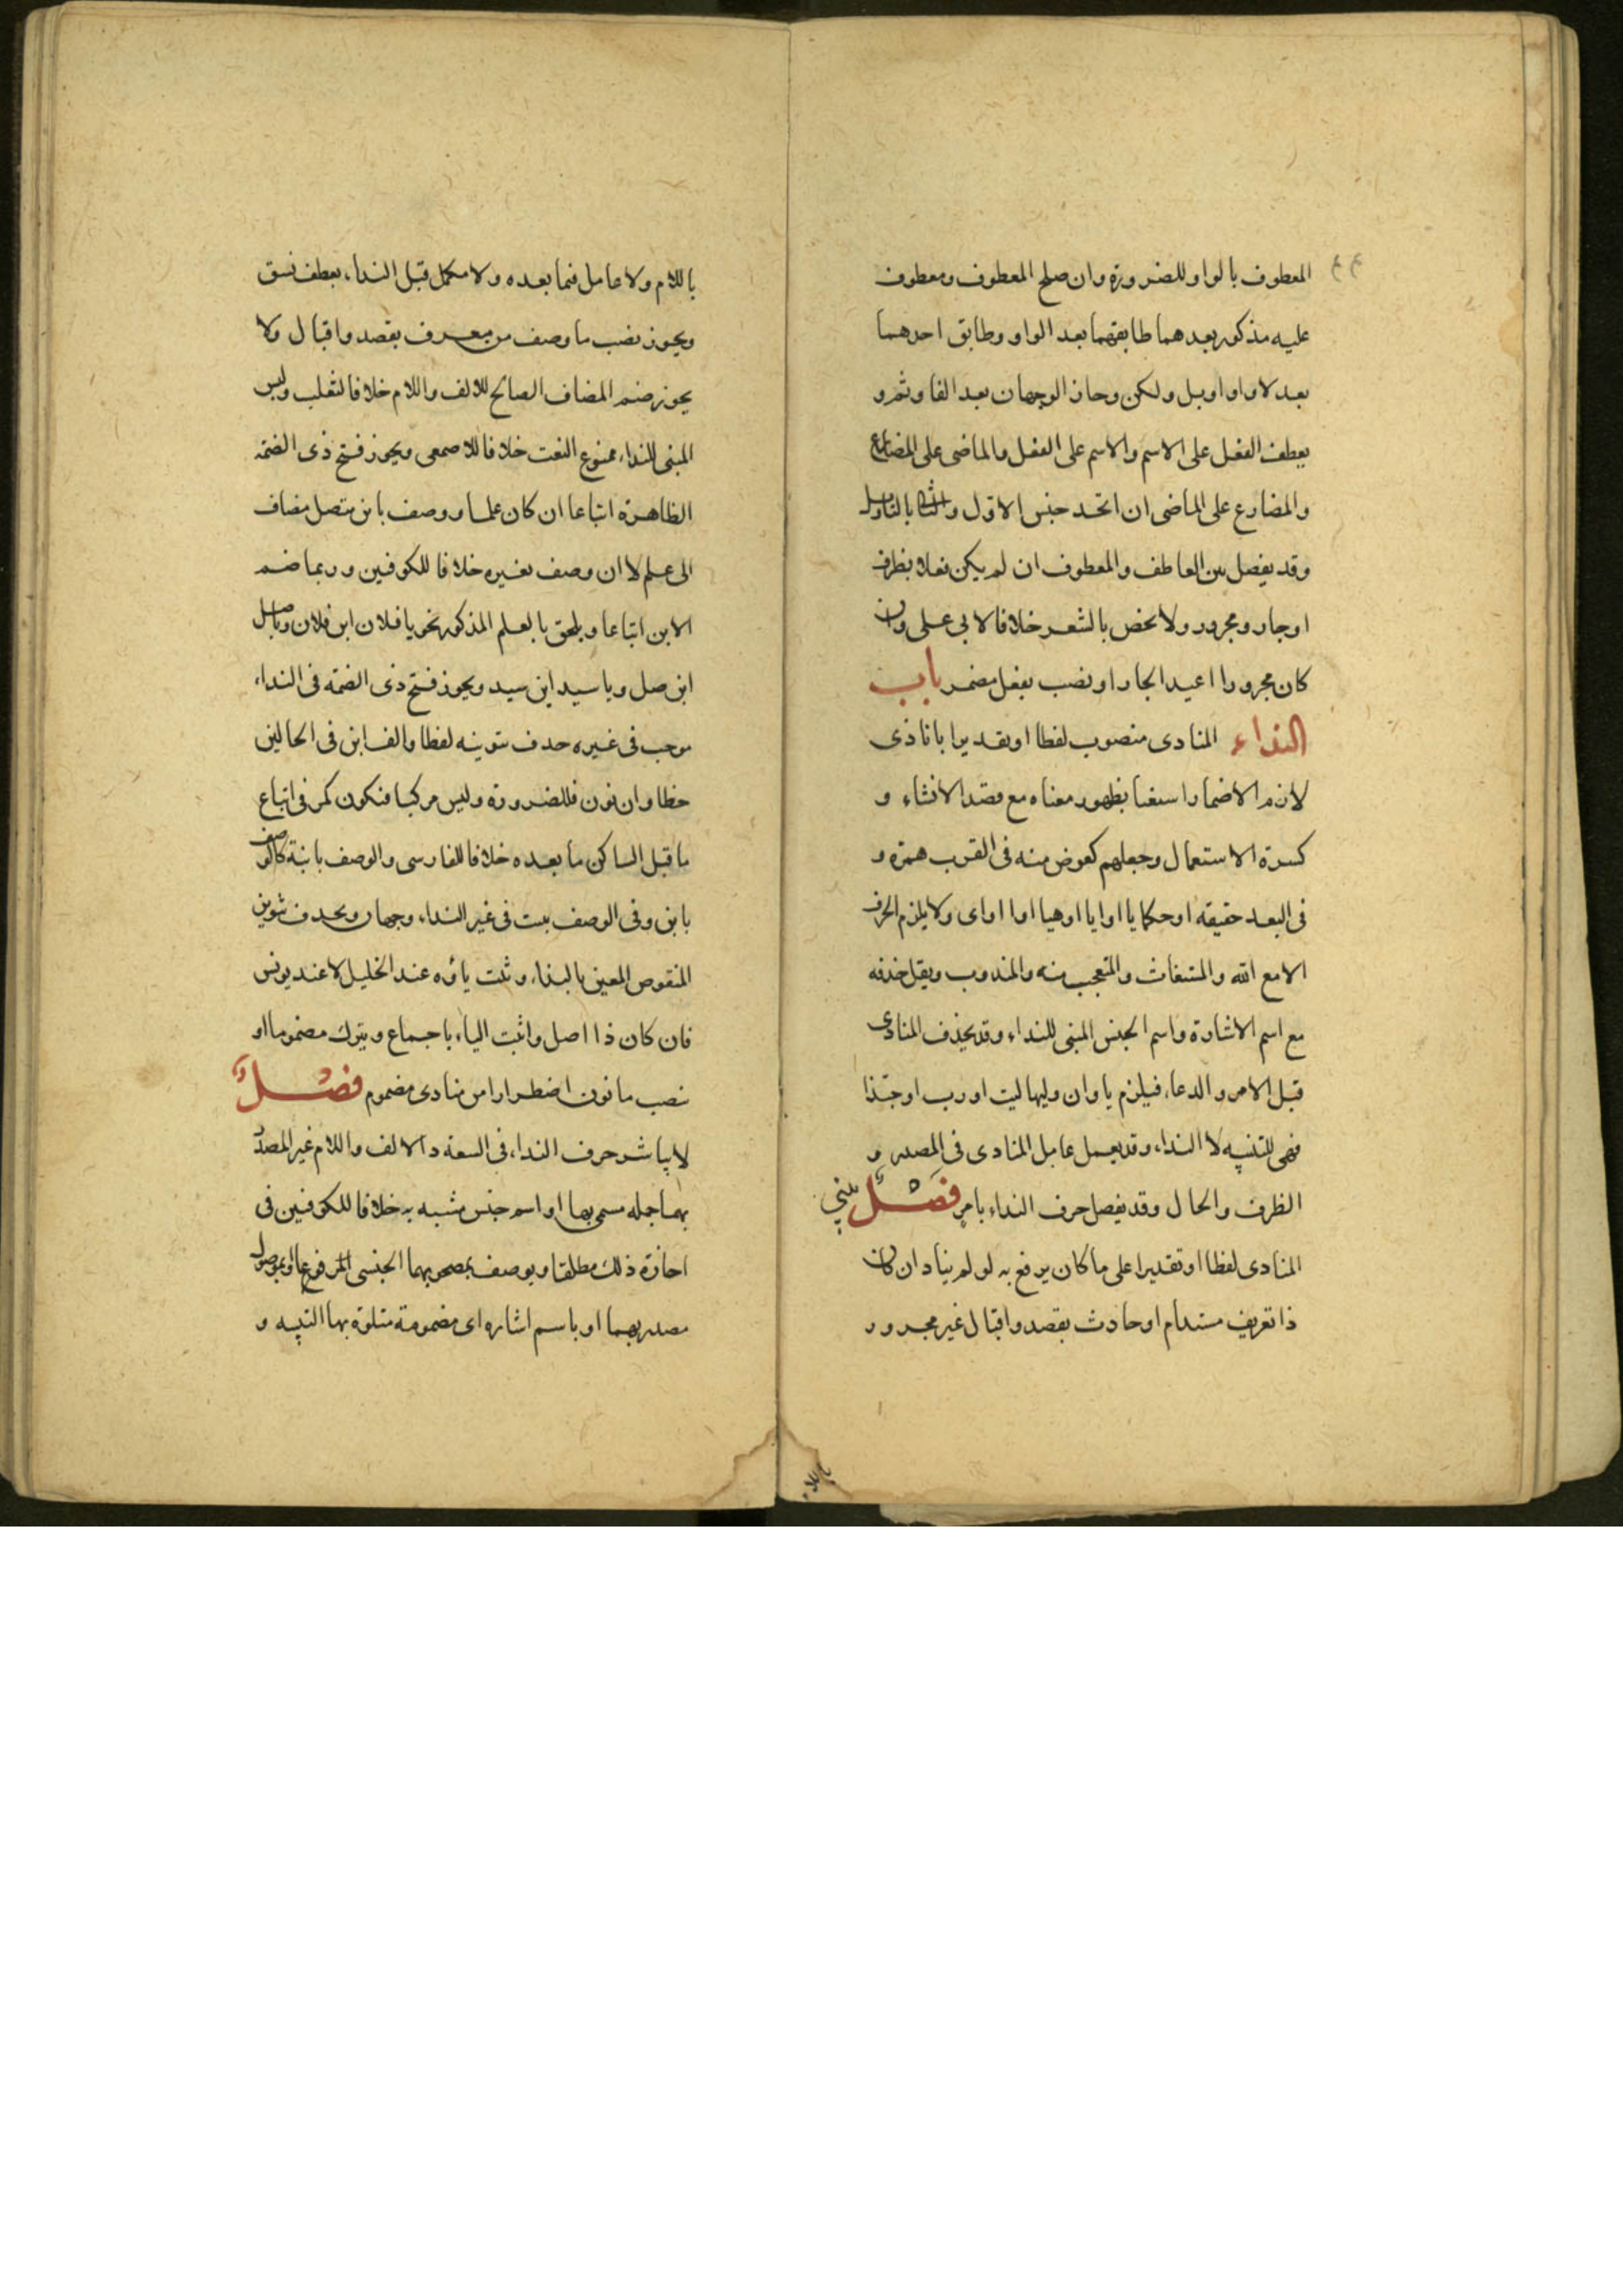 المعطوف بالواو للضرورة وان صلح المعطوف ومعطوف
عليه مذكور بعدهما طابقهما بعد الواو وطابق احدهما
بعد لا واو او بل ولكن وجاز الوجهان بعد الفا وثم و
يعطف الفعل على الاسم والاسم على الفعل والماضى على المضارع
والمضارع على الماضى ان اتحد جنس الاول والثانى بالتاويل
وقد يفصل بين العاطف والمعطوف ان لم يكن فعلا بظرف
او جار ومجرور ولا يخص بالشعر خلافا لابى على وان
كان مجرورا اعيد الجار او نصب بفعل مضمر باب
النداء المنادى منصوب لفظا او تقديرا بانادى
لازم الاضمار استغنا بظهور معناه مع قصد الانشاء و
كثرة الاستعمال وجعلهم كعوض منه فى القرب همزة و
فى البعد حقيقه او حكما يا او ايا او هيا او اا او اى ولا يلزم الحرف
الا مع الله والمستغاث والمتعجب منه والمندوب ويقل حذفه
مع اسم الاشارة واسم الجنس المبنى للنداء وقد يحذف المنادى
قبل الامر والدعاء فيلزم يا وان وليها ليت او رب او حبذا
فهى للتنبيه لا النداء وقد يعمل عامل المنادى فى المصدر و
الظرف والحال وقد يفصل حرف النداء بامر فصل يبنى
المنادى لفظا او تقديرا على ما كان يرفع به لو لم يناد ان كان
ذا تعريف مستدام او حادث بقصد واقبال غير مجرور
باللام
باللام ولا عامل فيما بعده ولا مكمل قبل النداء بعطف نسق
ويجوز نصب ما وصف من معرف بقصد واقبال ولا
يجوز ضم المضاف الصالح للالف واللام خلافا لثعلب وليس
المبنى للنداء ممنوع النعت خلافا للاصمعى ويجوز فتح ذى الضمة
الظاهرة اتباعا ان كان علما ووصف بابن متصل مضاف
الى علم لا ان وصف بغيره خلافا للكوفيين وربما ضم
الابن اتباعا ويلحق بالعلم المذكور نحو يا فلان ابن فلان ويا صل
ابن صل ويا سيد ابن سيد ويجوز فتح ذى الضمة فى النداء
موجب فى غيره حذف تنوينه لفظا والف ابن فى الحالين
خطا وان نون فللضرورة وليس مركبا فيكون كمر فى اتباع
ما قبل الساكن ما بعده خلافا للفارسى والوصف بابنة كالوصف
بابن وفى الوصف ببنت فى غير النداء وجهان ويحذف تنوين
المنقوص المعين بالنداء وتثبت ياؤه عند الخليل لا عند يونس
فان كان ذا اصل واثبت الياء باجماع ويترك مضموما او
ينصب ما نون اضطرارا من منادى مضموم فصل
لا يباشر حرف النداء فى السعة ذا الالف واللام غير المصدر
بهما جملة مسمى بها او اسم جنس مشبه به خلافا للكوفيين فى
اجازة ذلك مطلقا ويوصف بمصحوبهما الجنسى المرفوع او بموصول
مصدر بهما او باسم اشاره اى مضمومة متلوة بها التنبيه و